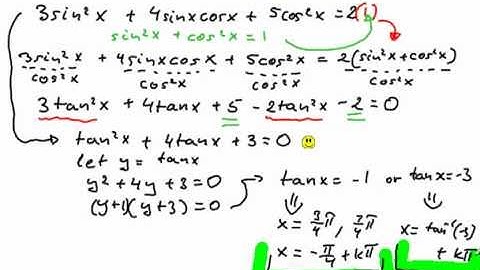 3sin²x + 4sinxcosx + 5cos²x = 2(1)
sin²x + cos²x = 1
3sin²x/cos²x + 4sinxcosx/cos²x + 5cos²x/cos²x = 2(sin²x+cos²x)/cos²x
3tan²x + 4tanx + 5 - 2tan²x - 2 = 0
tan²x + 4tanx + 3 = 0
let y = tanx
y² + 4y + 3 = 0
(y+1)(y+3) = 0
tanx = -1 or tanx = -3
x = 3/4π, 7/4π
x = -π/4 + kπ
x = tan⁻¹(-3)
+ kπ